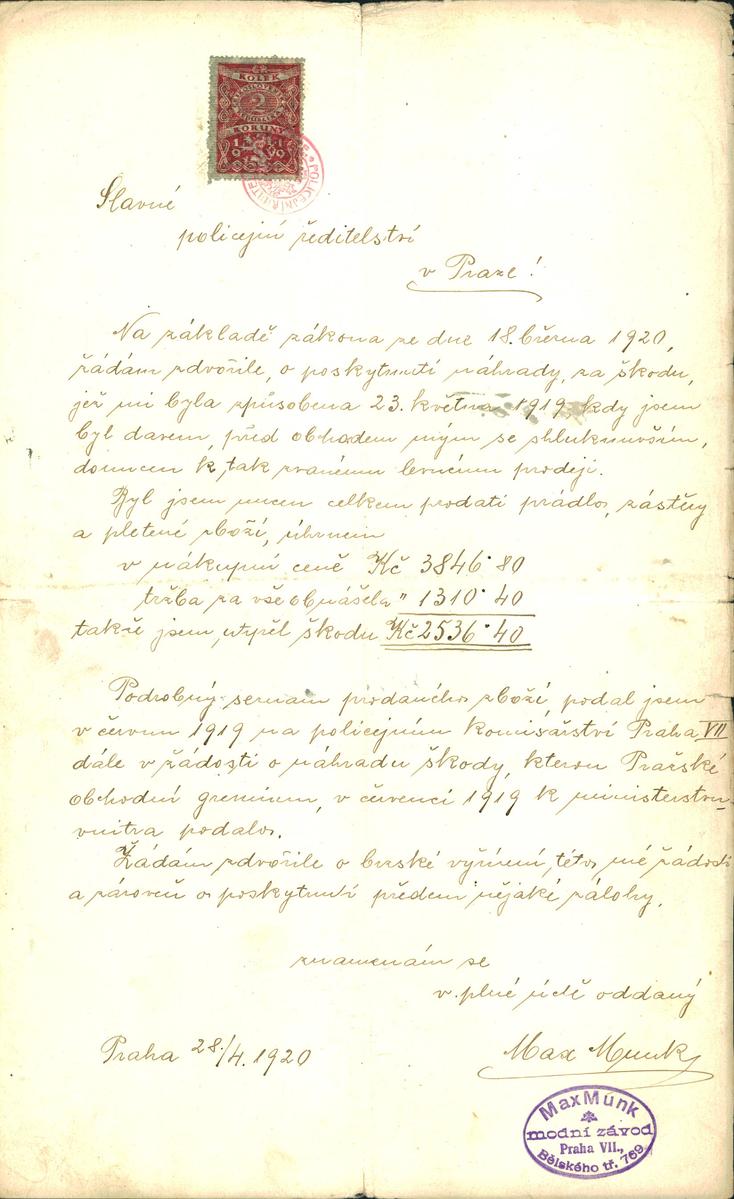 KOLEK
2
KORUNY
1919
Slavné
policejní ředitelství
v Praze!
Na základě zákona ze dne 18. března 1920,
žádám zdvořile, o poskytnutí náhrady, za škodu,
jež mi byla způsobena 23. května 1919 kdy jsem
byl davem, před obchodem mým se shluknuvším,
donucen k tak zvanému levnému prodeji.
Byl jsem nucen celkem prodati prádlo, zástěry
a pletené zboží, úhrnem
v nákupní ceně Kč 3846·80
tržba za vše obnášela " 1310·40
takže jsem utrpěl škodu Kč 2536·40
Podrobný seznam prodaného zboží, podal jsem
v červnu 1919 na policejním komisařství Praha VII
dále v žádosti o náhradu škody, kterou Pražské
obchodní gremium, v červenci 1919 k ministerstvu
vnitra podalo.
Žádám zdvořile o brzské vyřízení, této mé žádosti
a zároveň o poskytnutí předem nějaké zálohy.
znamenám se
v plné úctě oddaný
Praha 28./4. 1920
Max Munk
Max Munk
modní závod
Praha VII.,
Bělského tř. 769